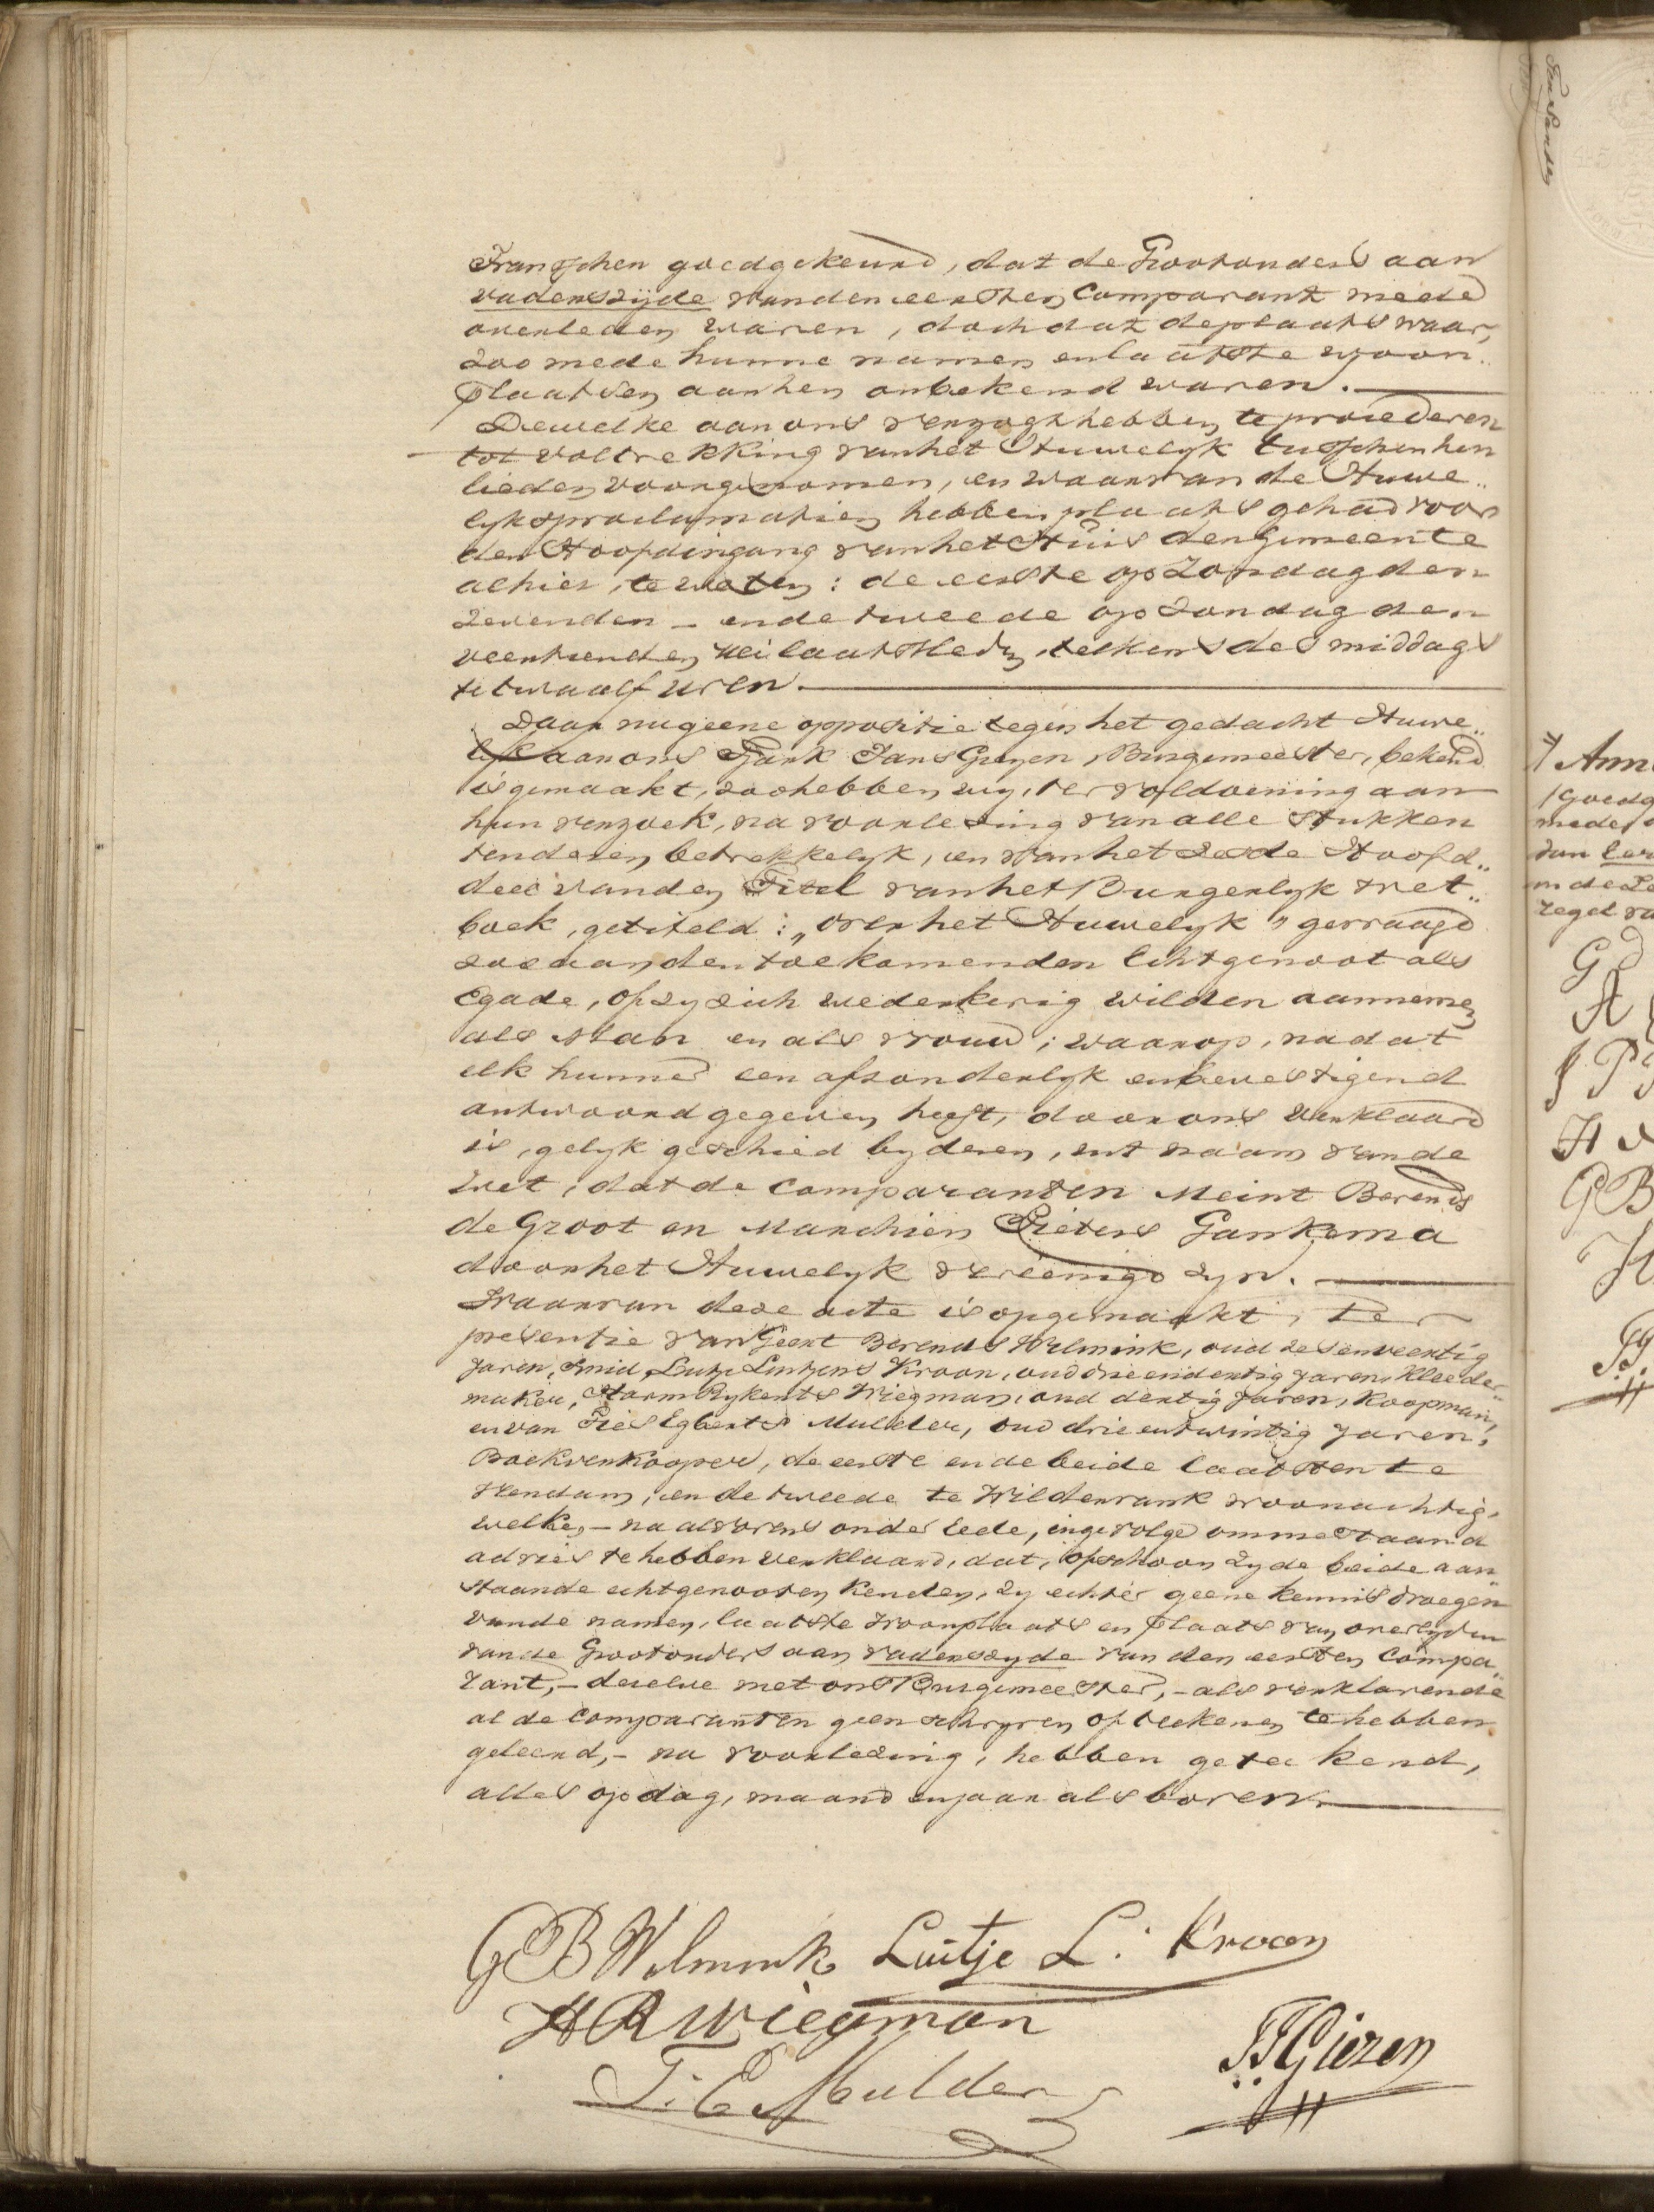 Franschen goedgekeurd, dat de Grootouders aan
vaderszijde van den eersten Comparant mede
overleden waren, doch dat de plaats waar,
zoo mede hunne namen en laatste woon..
plaatsen aan hen onbekend waren.
Dewelke aan ons verzogt hebben te procederen
tot voltrekking van het Huwelyk tusschen hen
lieden voorgenomen, en waarvan de Huwe..
lyksproclamatien hebben plaats gehad voor
den Hoofdingang van het Huis der gemeente
alhier, te weten: de eerste op Zondag den
zevenden - en de tweede op Zondag den
veertienden Mei laatstleden, telkens des middags
te twaalf uren.
Daar nu geene oppositie tegen het gedacht Huwe..
lyk aan ons Tjark Jans Giezen, Burgemeester, bekend
is gemaakt, zoo hebben wy, ter voldoening aan
hun verzoek, na voorlezing van alle stukken
ten dezen betrekkelyk, en van het zesde Hoofd..
deel van den Titel van het Burgerlyk Wet..
boek, getiteld: „over het Huwelyk" gevraagd
zoo aan den toekomenden Echtgenoot als
Egade, of zy zich wederkerig wilden aannemen
als Man en als Vrouw; waarop, nadat
elk hunner een afzonderlyk en bevestigend
antwoord gegeven heeft, door ons verklaard
is, gelyk geschied by dezen, uit naam van de
Wet, dat de Comparanten Meint Berends
de Groot en Marchien Pieters Gankema
door het Huwelyk vereenigd zyn.
Waarvan deze acte is opgemaakt, ter
presentie van Geert Berends Wilmink, oud zes en veertig
Jaren, Smid, Luitje Luitjens Kroon, oud drie en dertig Jaren, Kleeder..
maker, Harm Rykents Wiegman, oud dertig Jaren, Koopman,
en van Fies Egberts Mulder, oud drie en twintig Jaren,
Boekverkooper, de eerste en de beide laatsten te
Veendam, en de tweede te Wildervank woonachtig,
welke, - na alvorens onder Eede, ingevolge ommestaand
advies te hebben verklaard, dat, ofschoon zy de beide aan..
staande echtgenooten kenden, zy echter geene kennis droegen
van de namen, laatste woonplaats en plaats van overlyden
van de Grootouders aan vaderszyde van den eersten Compa..
rant, - dezelve met ons Burgemeester, - als verklarende
al de Comparanten geen schryven of teekenen te hebben
geleerd, - na voorlezing, hebben geteekend,
alles op dag, maand en jaar als boven.
GB Wilmink Luitje L. Kroon
HR Wiegman
TJ Giezen
F. E. Mulder